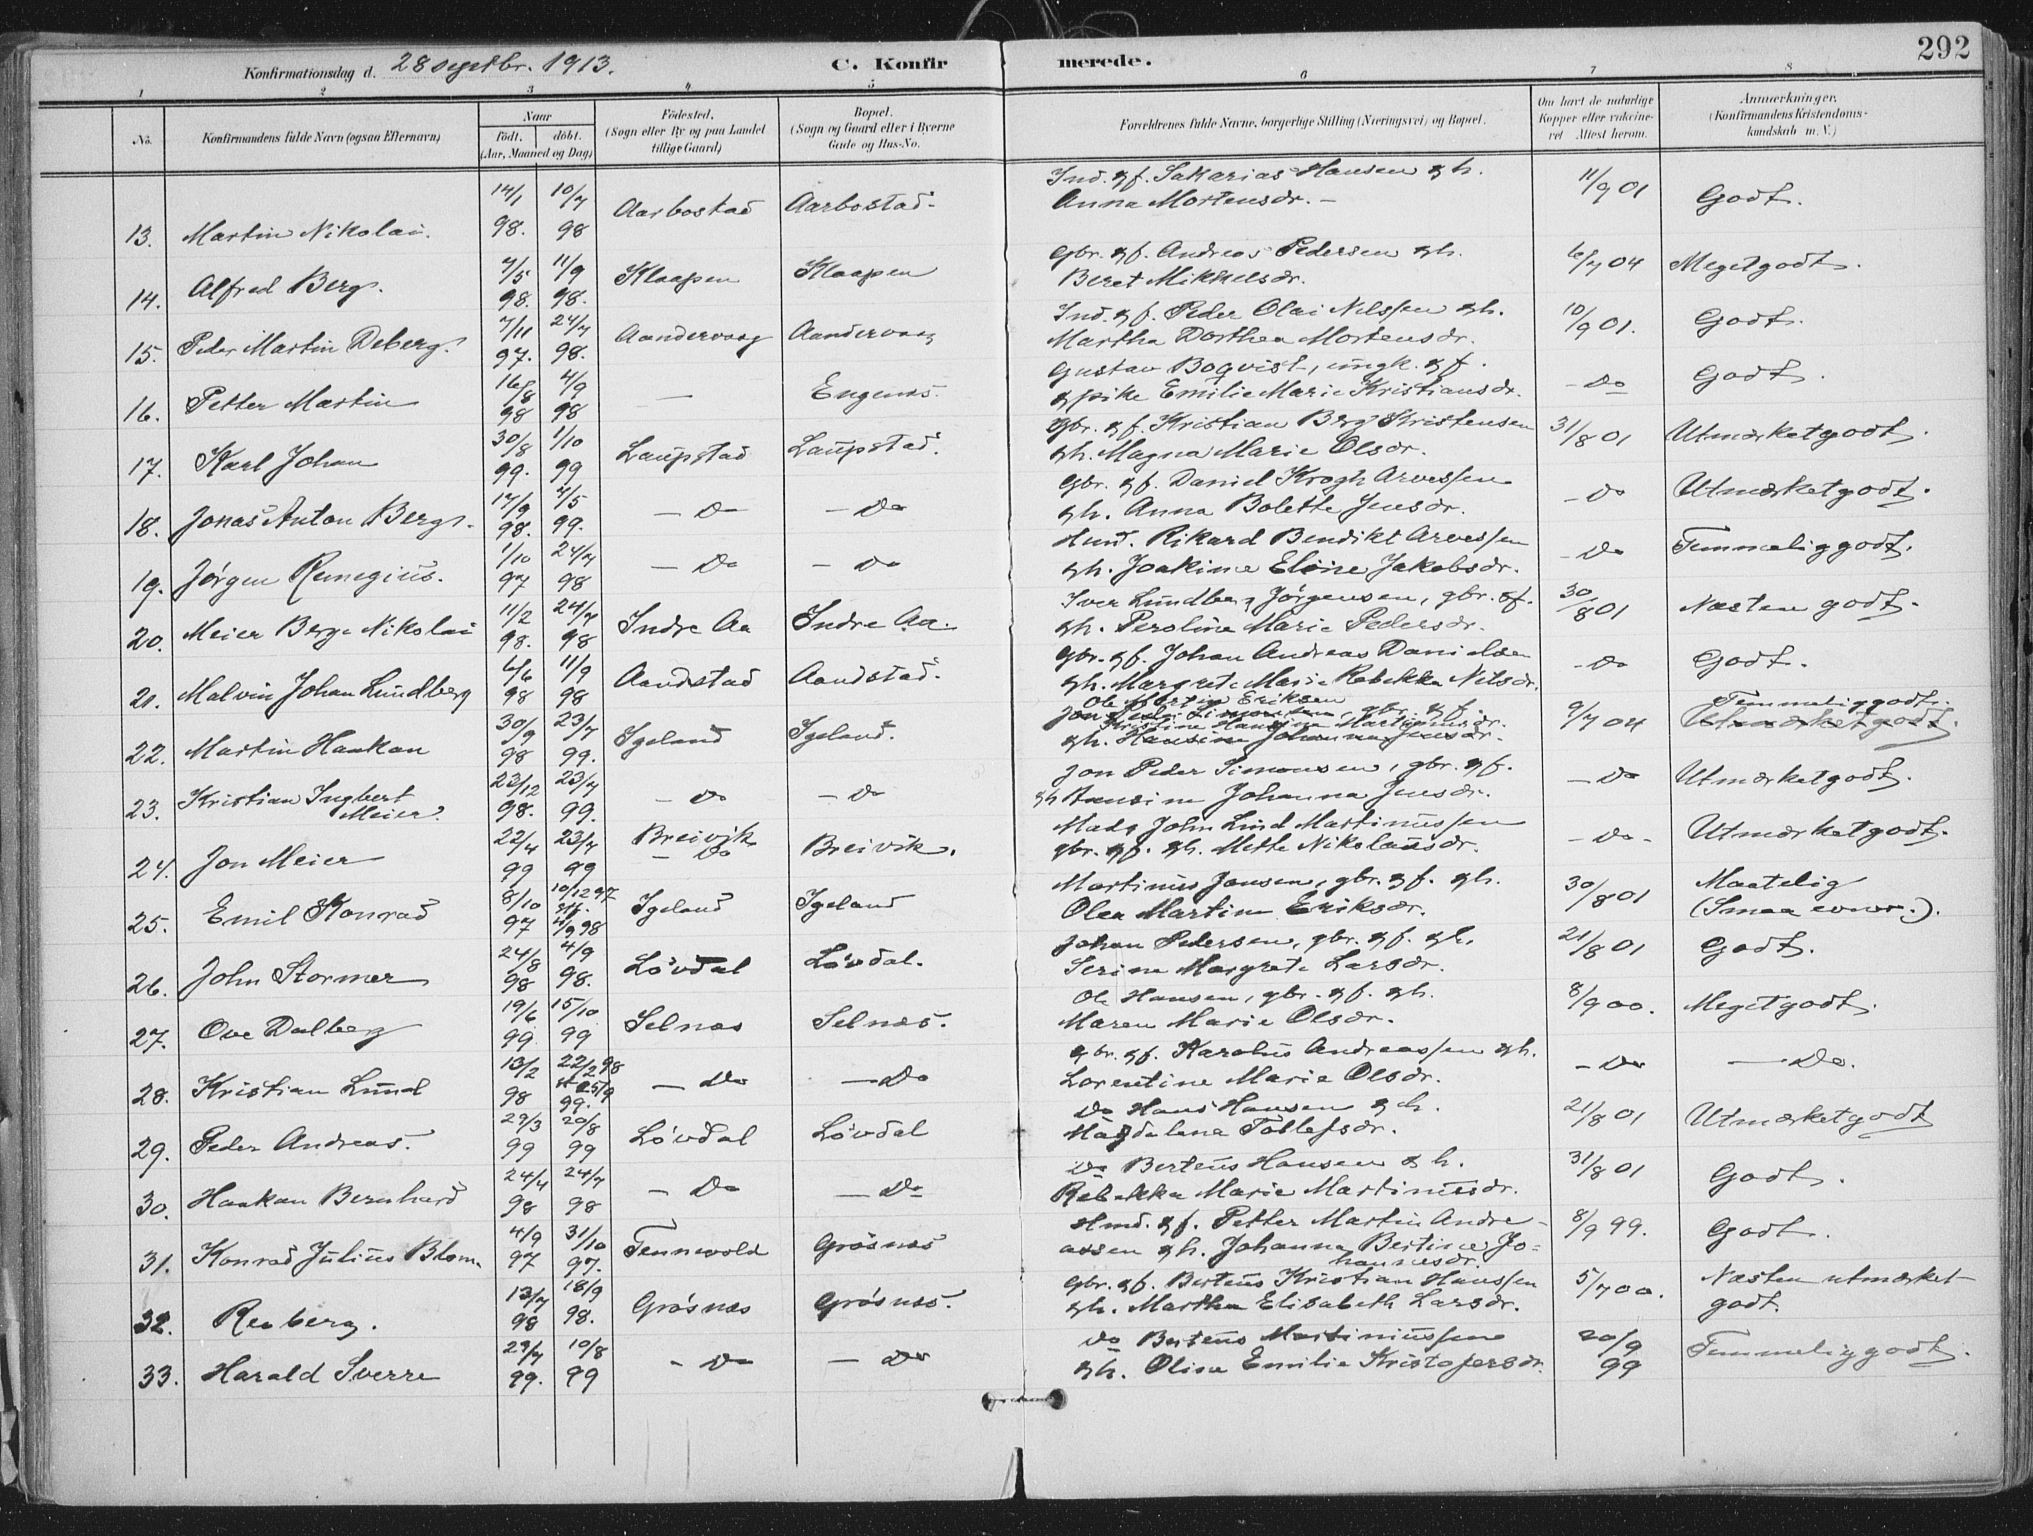 292
Konfirmationsdag d. 28 septbr. 1913. C. Konfirmerede.
1 2 3 4 5 6 7 8
No. Konfirmandens fulde Navn (ogsaa Efternavn) Naar födt. döbt. (Aar, Maaned og Dag) Födested. (Sogn eller By og paa Landet tillige Gaard) Bopæl. (Sogn og Gaard eller i Byerne Gade og Hus-No. Forældrenes fulde Navne, borgerlige Stilling (Næringsvei) og Bopæl. Om havt de naturlige Kopper eller vakcineret Attest herom. Anmærkninger. (Konfirmandens Kristendomskundskab m. V.)
13. Martin Nikolai. 14/1 98. 10/7 98 Aarbostad Aarbostad. Ind. gf. Sakarias Hansen gh. Anna Mortensdr. – 11/9 01 Godt.
14. Alfred Berg. 7/5 98. 11/9 98. Klaapen Klaapen Gbr. gf. Andreas Pedersen gh. Beret Mikkelsdr. 6/7 04 Meget godt.
15. Peder Martin Deberg. 7/11 97. 24/7 98. Aandervaag Aandervaag Ind. gf. Peder Olai Nilssen gh. Martha Dorthea Mortensdr. 10/9 01. Godt.
16. Petter Martin 16/8 98 4/9 98 — Engenes. Gustav Boqvist, ungk. gf. & pike Emilie Marie Kristiansdr. – Do Godt.
17. Karl Johan 30/8 99. 1/10 99 Laupstad Laupstad. Gbr. gf. Kristian Berg Kristensen gh. Magna Marie Olsdr. 31/8 01 Utmærket godt.
18. Jonas Anton Berg. 17/9 98. 7/5 99. – Do – Do Gbr. gf. Daniel Krogh Arvessen gh. Anna Bolette Jensdr. – Do Utmærket godt.
19. Jörgen Remigius. 1/10 97 24/7 98 – Do – Do Hmd. Rikard Bendikt Arvessen gh. Joakine Eline Jakobsdr. – Do Temmelig godt.
20. Meier Berge Nikolai 11/2 98. 24/7 98 Indre Aa Indre Aa. Iver Lundberg Jörgensen, gbr. gf. gh. Peroline Marie Pedersdr. 30/8 01 Næsten godt.
21. Malvin Johan Lundberg 6/6 98 11/9 98 Aandstad Aandstad. Gbr. gf. Johan Andreas Danielsen gh. Margrete Marie Rebekka Nilsdr. – Do Godt.
22. Martin Haakon 30/9 98 23/7 99. Igeland Igeland. Ole Martin Eriksen Jon Peder Simonsen, gbr. gf. Kristine Hansine Martinusdr. gh. Hansine Johanna Jensdr. 9/7 04 Temmelig godt. Utmærket godt.
23. Kristian Ingbert Meier. 23/12 98. 23/7 99. – Do – Do Jon Peder Simonsen, gbr. gf. gh. Hansine Johanna Jensdr. – Do Utmærket godt.
24. Jon Meier 22/4 99 23/7 99 Breivik – Do Breivik. Mads John Lind Martinussen gbr. gf. gh. Mette Nikolausdr. – Do – Utmærket godt.
25. Emil Konrad 8/10 97 10/12 97 4/9 98 Igeland Igeland Martinus Jansen, gbr. gf. gh. Olea Martine Eriksdr. 30/8 01 Maatelig (Smaa evner.).
26. John Stormer 24/8 98 4/9 98. Lövdal Lövdal. Johan Pedersen, gbr. gf. gh. Serine Margrete Larsdr. 21/8 01 Godt.
27. Ove Dalberg 19/6 99. 15/10 99 Selnæs Selnæs. Ole Hansen, gbr. gf. gh. Maren Marie Olsdr. 8/9 00. Meget godt.
28. Kristian Lund 13/2 98 22/2 98 99. – Do – Do gbr. gf. Karolus Andreassen gh. Lorentine Marie Olsdr. – Do – Do.
29. Peder Andreas. 29/3 99 20/8 99 Lövdal Lövdal Do Hans Hansen gh. Magdalena Tollefsdr. 21/8 01 Utmærket godt
30. Haakon Bernhard 24/4 98 24/7 98 – Do – Do Do Berteus Hansen gh. Rebekka Marie Martinusdr. 31/8 01 Godt.
31. Konrad Julius Blom. 4/9 97 31/10 97. Tennevold Grösnes Hmd. gf. Petter Martin Andreassen gh. Johanna Bertine Johannesdr. 8/9 99. Godt.
32. Reberg. 13/7 98 18/9 98. Grösnes Grösnes. Gbr. gf. Berteus Kristian Hanssen gh. Martha Elisabeth Larsdr. 5/7 00. Næsten utmærket godt.
33. Harald Sverre 29/7 99. 10/8 99 – Do – Do Do Berteus Martiniussen gh. Oline Emilie Kristofersdr. 20/9 99 Temmelig godt.